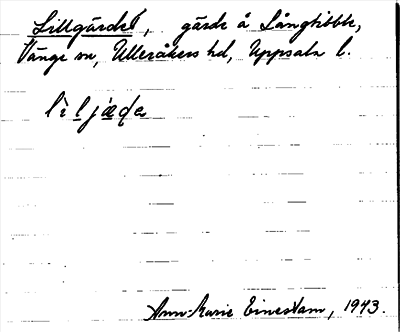 Lillgärdet, gärde å Långtibble,
Vänge sn, Ulleråkers hd, Uppsala l.
lìljæ̀ɖe
Ann-Marie Einestam, 1943.